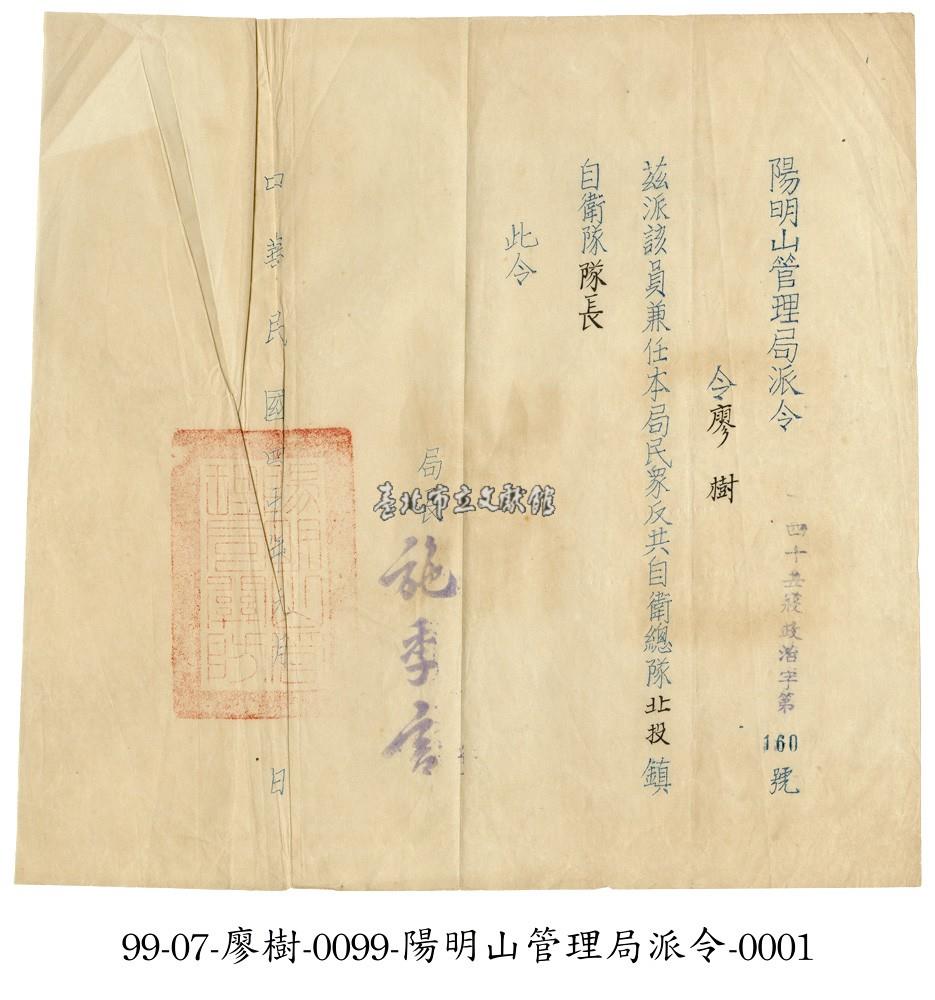 陽明山管理局派令
四十五 政治字第160號
令廖樹
茲派該員兼任本局民眾反共自衛總隊北投鎮
自衛隊隊長
此令
局長施季言
華民國四 年 月 日
臺北市立文獻館
99-07-廖樹-0099-陽明山管理局派令-0001